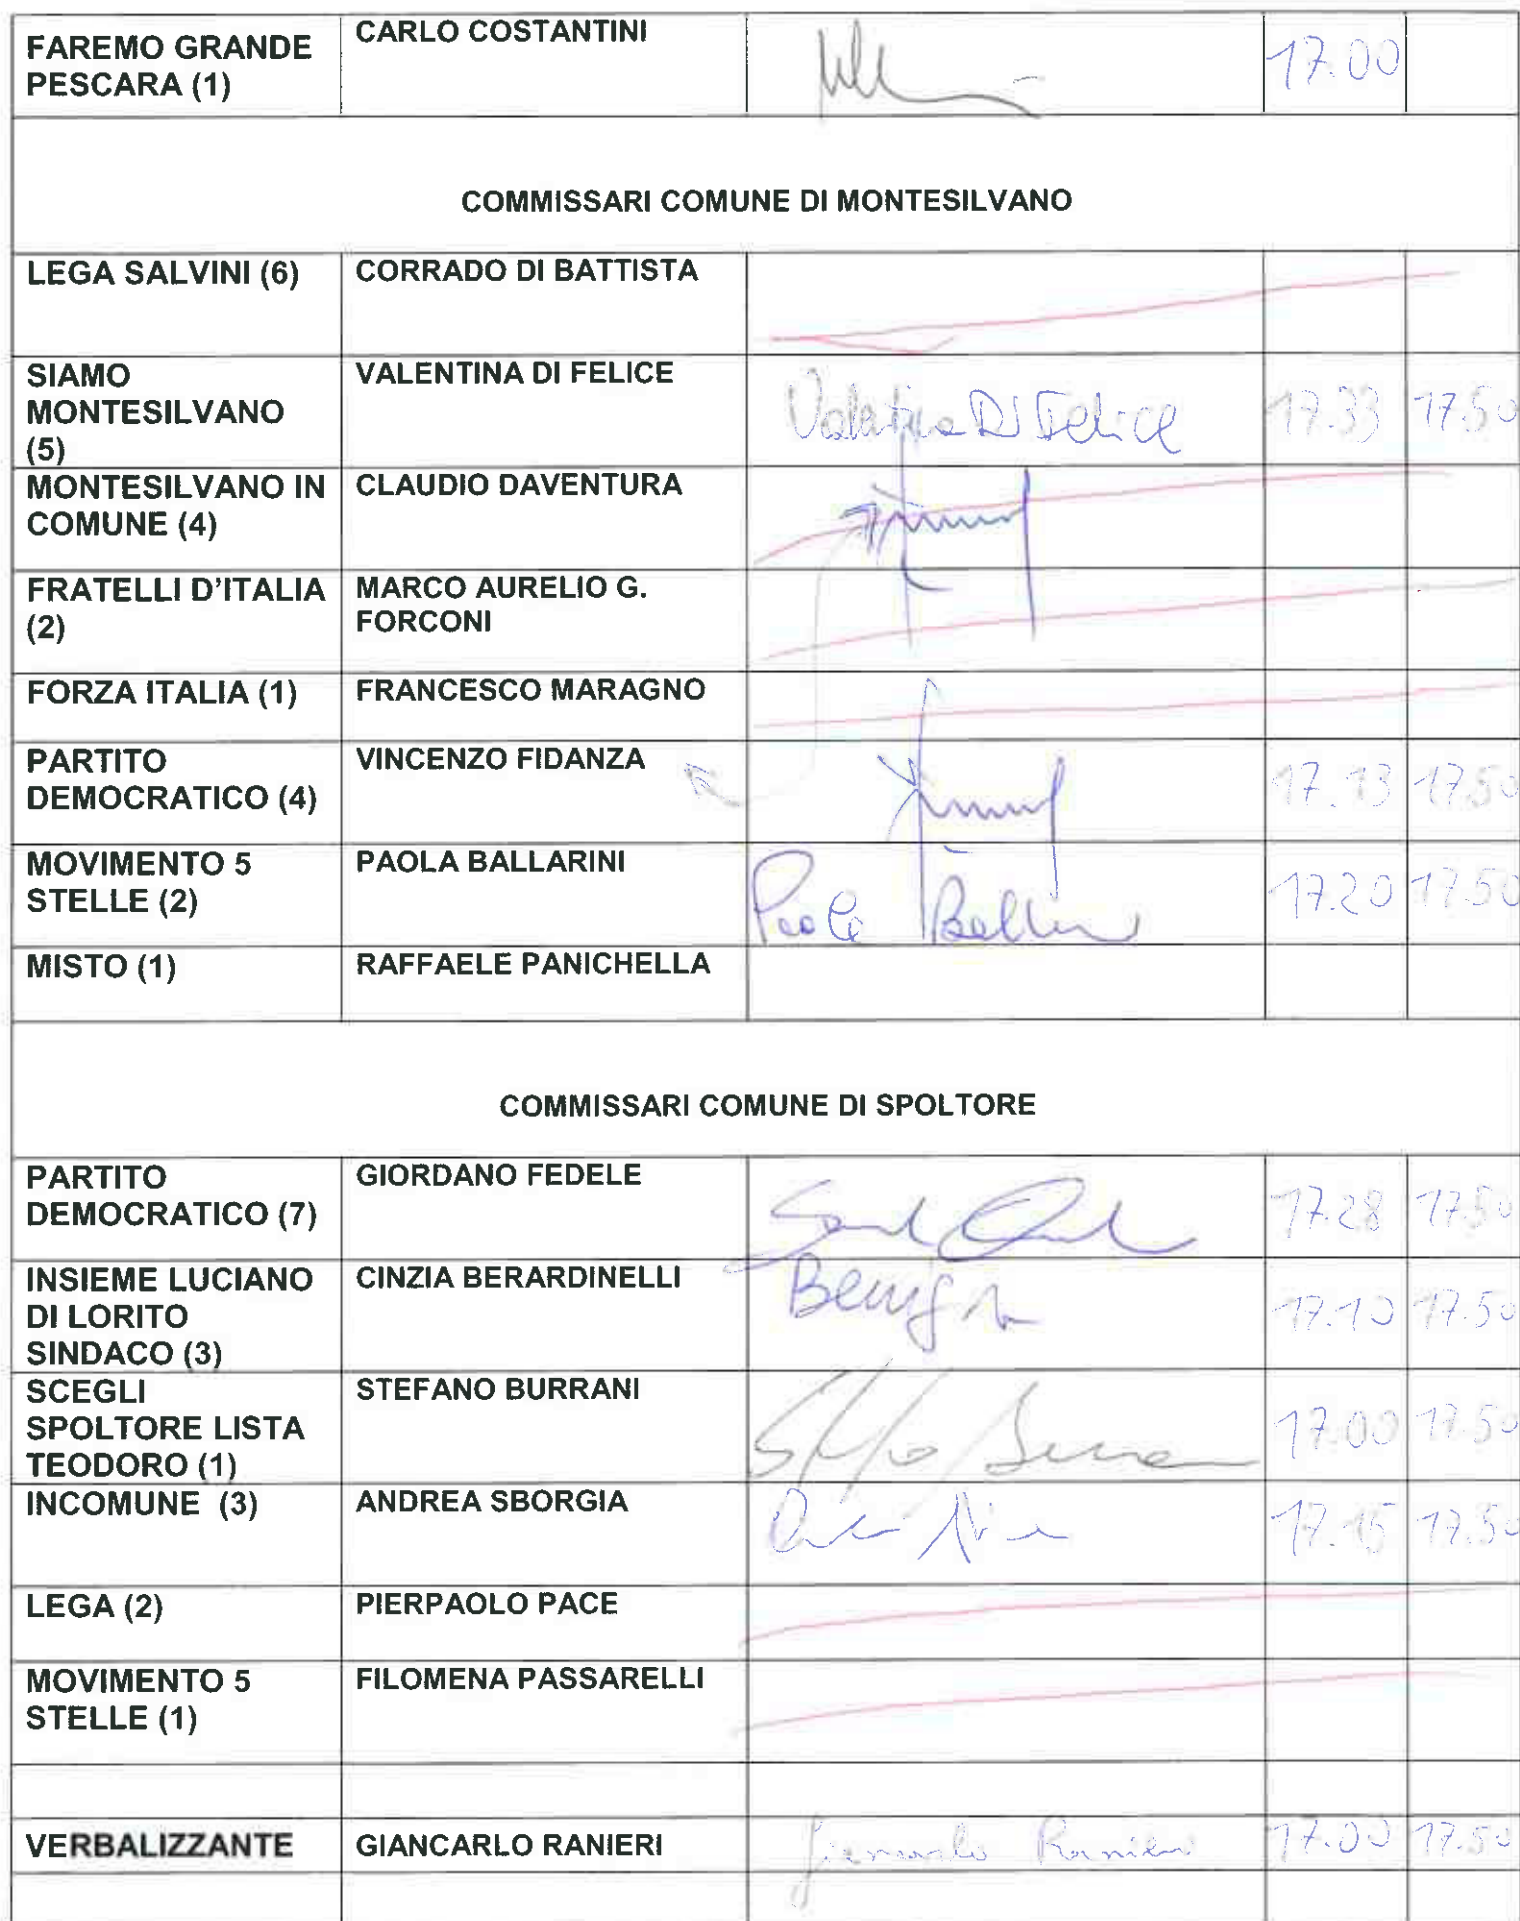 FAREMO GRANDE
PESCARA (1)
CARLO COSTANTINI
17.00
COMMISSARI COMUNE DI MONTESILVANO
LEGA SALVINI (6)
CORRADO DI BATTISTA
SIAMO
MONTESILVANO
(5)
VALENTINA DI FELICE
Valentina Di Felice
17.33
17.50
MONTESILVANO IN
COMUNE (4)
CLAUDIO DAVENTURA
FRATELLI D'ITALIA
(2)
MARCO AURELIO G.
FORCONI
FORZA ITALIA (1)
FRANCESCO MARAGNO
PARTITO
DEMOCRATICO (4)
VINCENZO FIDANZA
17.13
17.50
MOVIMENTO 5
STELLE (2)
PAOLA BALLARINI
Paola
17.20
17.50
MISTO (1)
RAFFAELE PANICHELLA
COMMISSARI COMUNE DI SPOLTORE
PARTITO
DEMOCRATICO (7)
GIORDANO FEDELE
17.28
17.50
INSIEME LUCIANO
DI LORITO
SINDACO (3)
CINZIA BERARDINELLI
17.10
17.50
SCEGLI
SPOLTORE LISTA
TEODORO (1)
STEFANO BURRANI
17.00
17.50
INCOMUNE (3)
ANDREA SBORGIA
17.15
17.50
LEGA (2)
PIERPAOLO PACE
MOVIMENTO 5
STELLE (1)
FILOMENA PASSARELLI
VERBALIZZANTE
GIANCARLO RANIERI
Giancarlo Ranieri
17.00
17.50